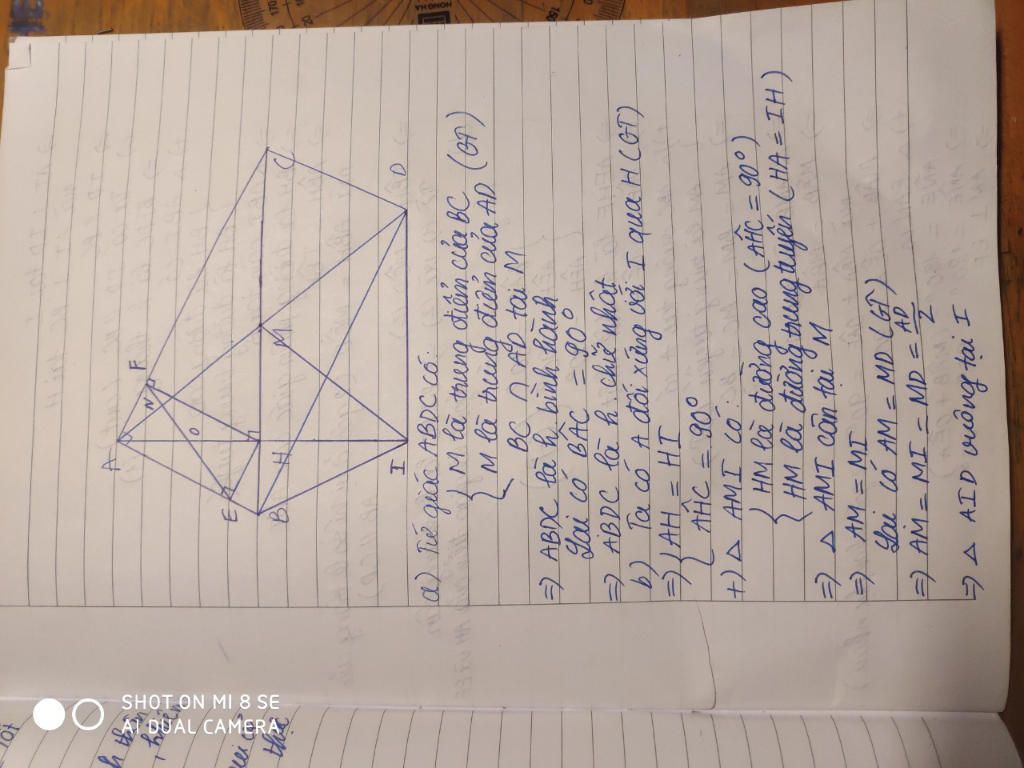 A
F
N
E
O
B
H
M
C
I
D
a) Tứ giác ABDC có:
{ M là trung điểm của BC (GT)
{ M là trung điểm của AD
BC ∩ AD tại M
=) ABDC là h. bình hành
Lại có BÂC = 90°
=) ABDC là h. chữ nhật
b) Ta có A đối xứng với I qua H (GT)
=) { AH = HI
{ AĤC = 90°
+) △ AMI có:
{ HM là đường cao (AĤC = 90°)
{ HM là đường trung tuyến (HA = IH)
=) △ AMI cân tại M
=) AM = MI
Lại có AM = MD (GT)
=) AM = MI = MD = AD/2
=) △ AID vuông tại I
SHOT ON MI 8 SE
AI DUAL CAMERA
HONGHA